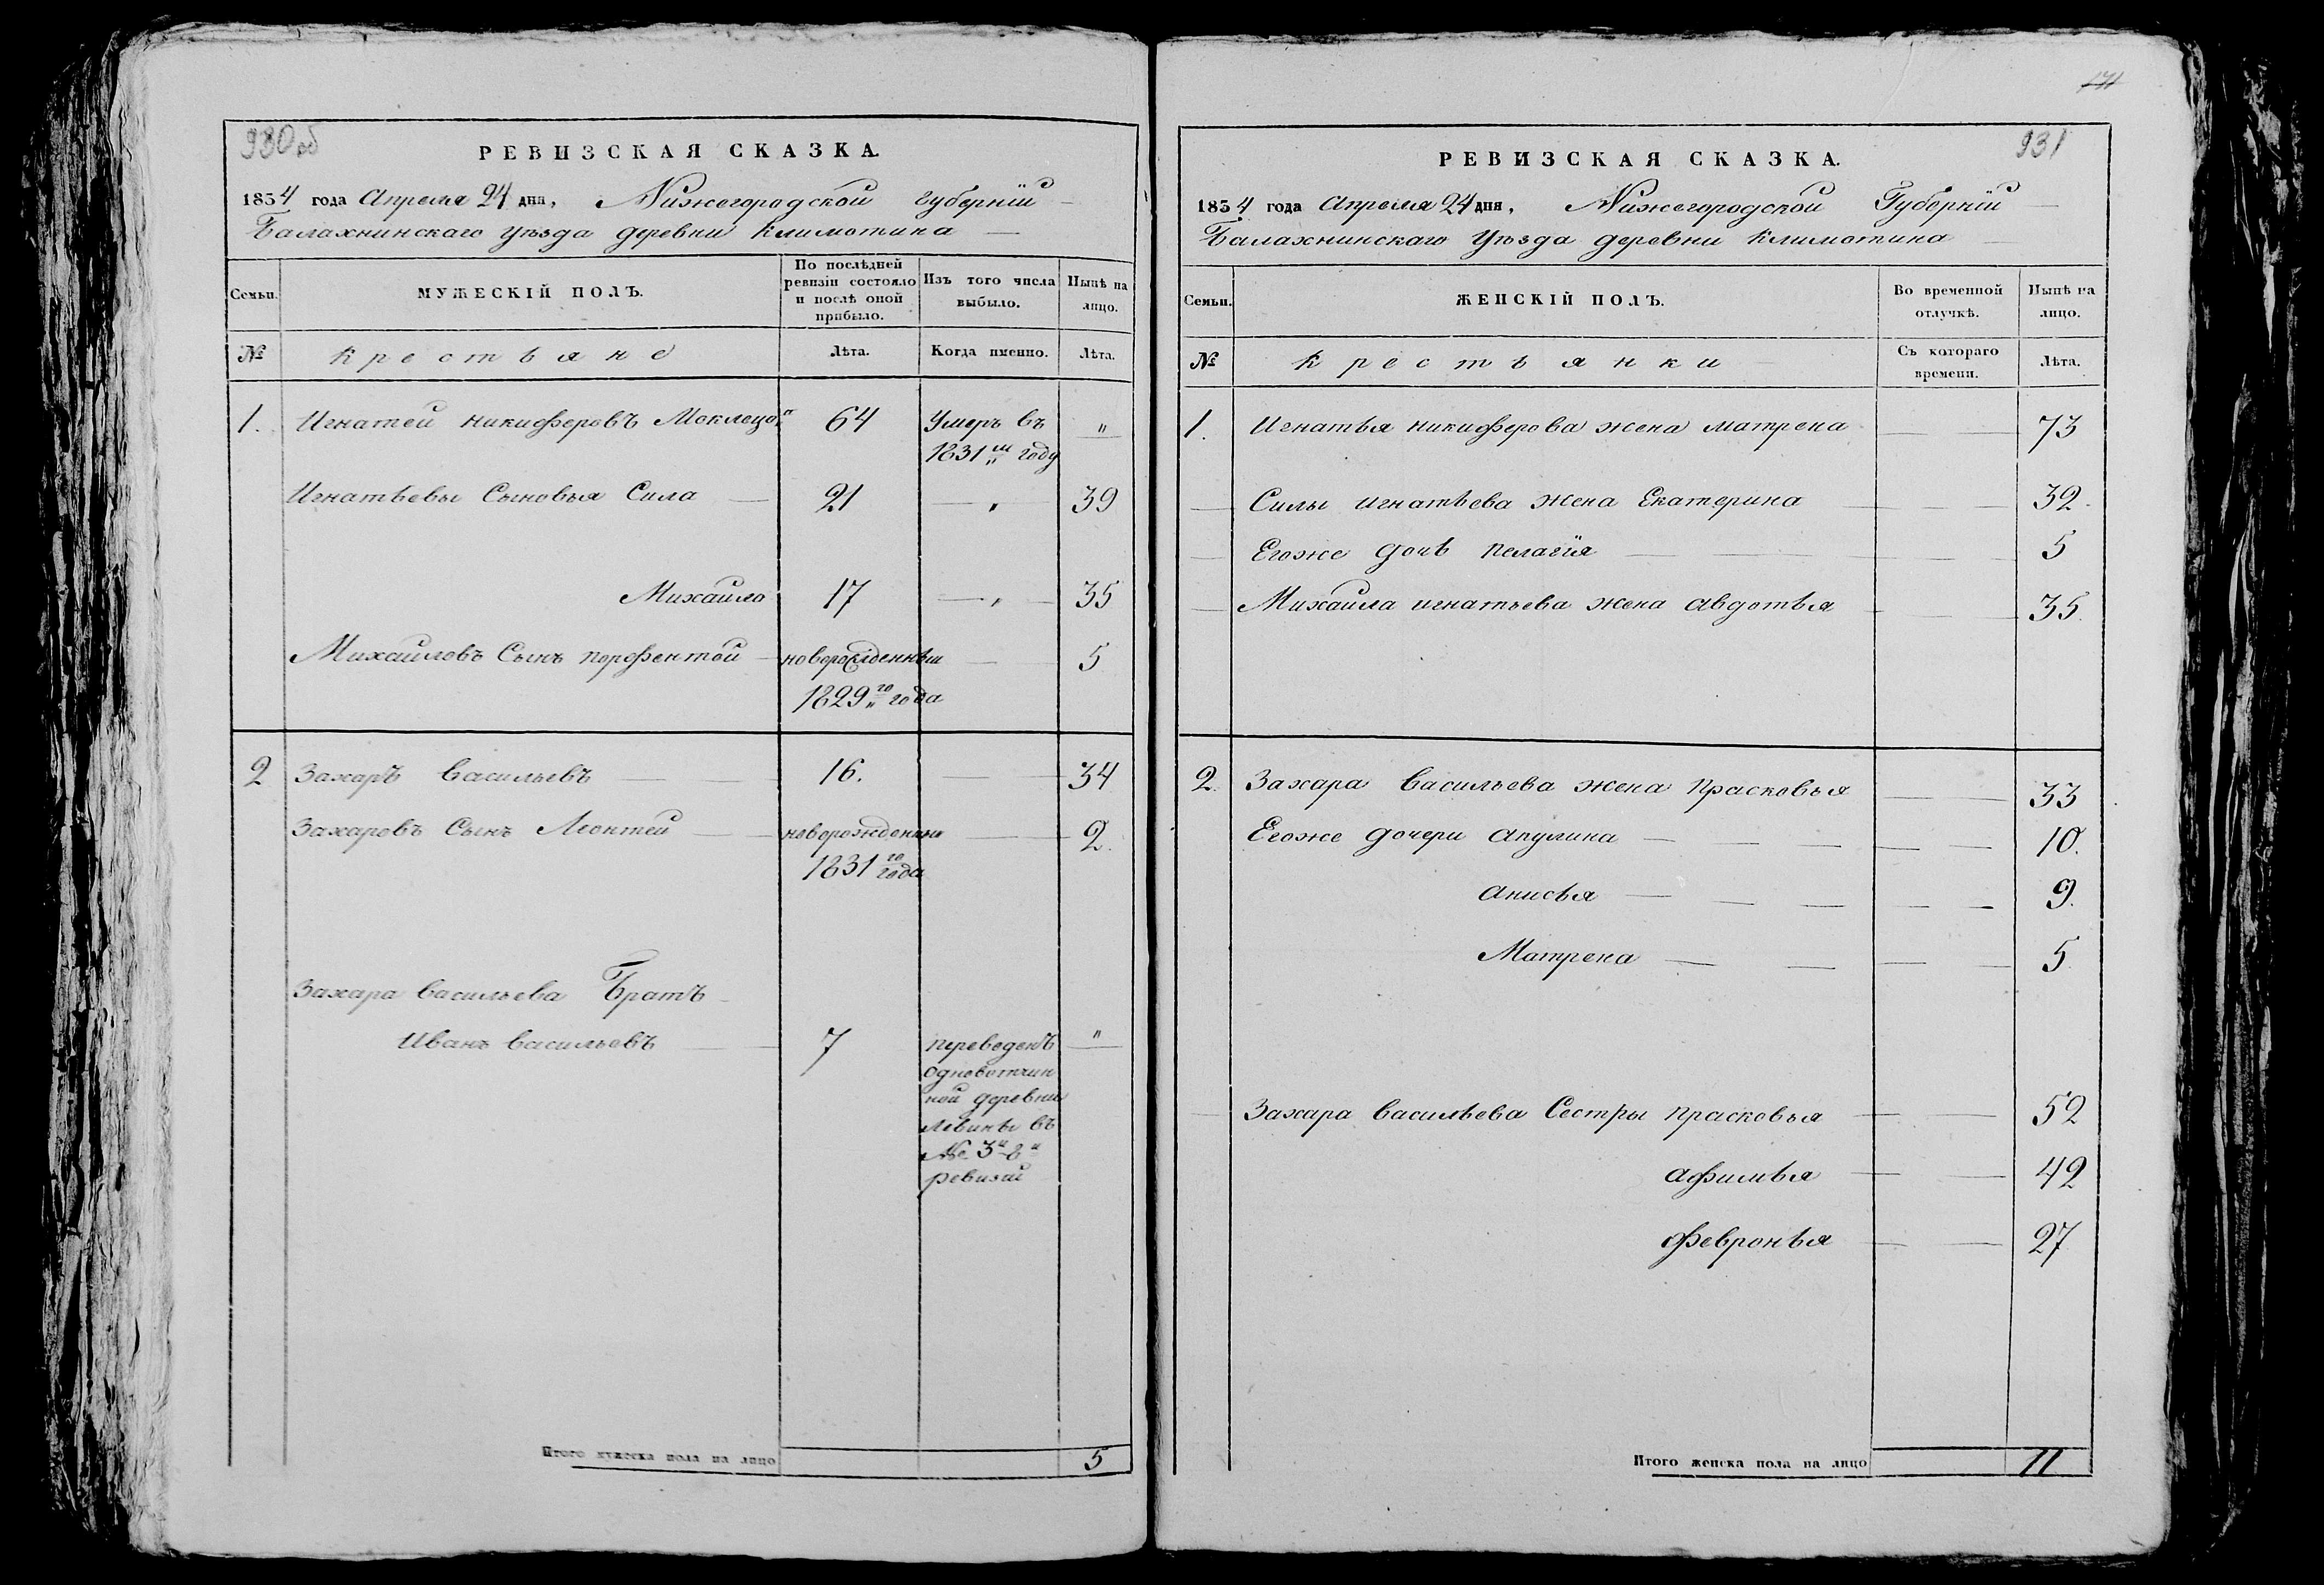 930об
РЕВИЗСКАЯ СКАЗКА.
1834 года Апреля 24 дня, Нижегородской губернїи
Балахнинскаго уѣзда деревни Климотина
Семьи.
МУЖЕСКІЙ ПОЛЪ.
По послѣдней ревизіи состояло и послѣ оной прибыло.
Изъ того числа выбыло.
Нынѣ на лицо.
№
Крестьяне
Лѣта.
Когда именно.
Лѣта.
1. Игнатей Никифоровъ 64 Умеръ въ "
1831м году
Игнатьевы Сыновья Сила 21 " 39
Михайло 17 " 35
Михайловъ Сынъ Перфентей новорожденный 5
1829го года
2 Захаръ Васильевъ 16. 34
Захаровъ Сынъ Леонтей новорожденный 2.
1831го года
Захара Васильева Братъ
Иванъ Васильевъ 7 переведенъ "
одновотчин
ной деревни
въ
№ 3й 8й
ревизїи
Итого мужеска пола на лицо 5
171
931
РЕВИЗСКАЯ СКАЗКА.
1834 года Апреля 24 дня, Нижегородской Губернїи
Балахнинскаго Уѣзда деревни Климотина
Семьи.
ЖЕНСКІЙ ПОЛЪ.
Во временной отлучкѣ.
Нынѣ на лицо.
№
Крестьянки
Съ котораго времени.
Лѣта.
1. Игнатья Никифорова жена Матрена 73
Силы Игнатьева жена Екатерина 32.
Егоже дочь Пелагїя 5
Михайла Игнатьева жена Авдотья 35.
2. Захара Васильева жена Прасковья 33
Егоже дочери Акулина 10.
Анисья 9.
Матрена 5
Захара Васильева Сестры Прасковья 52
Афимья 42
Февронья 27
Итого женска пола на лицо 11